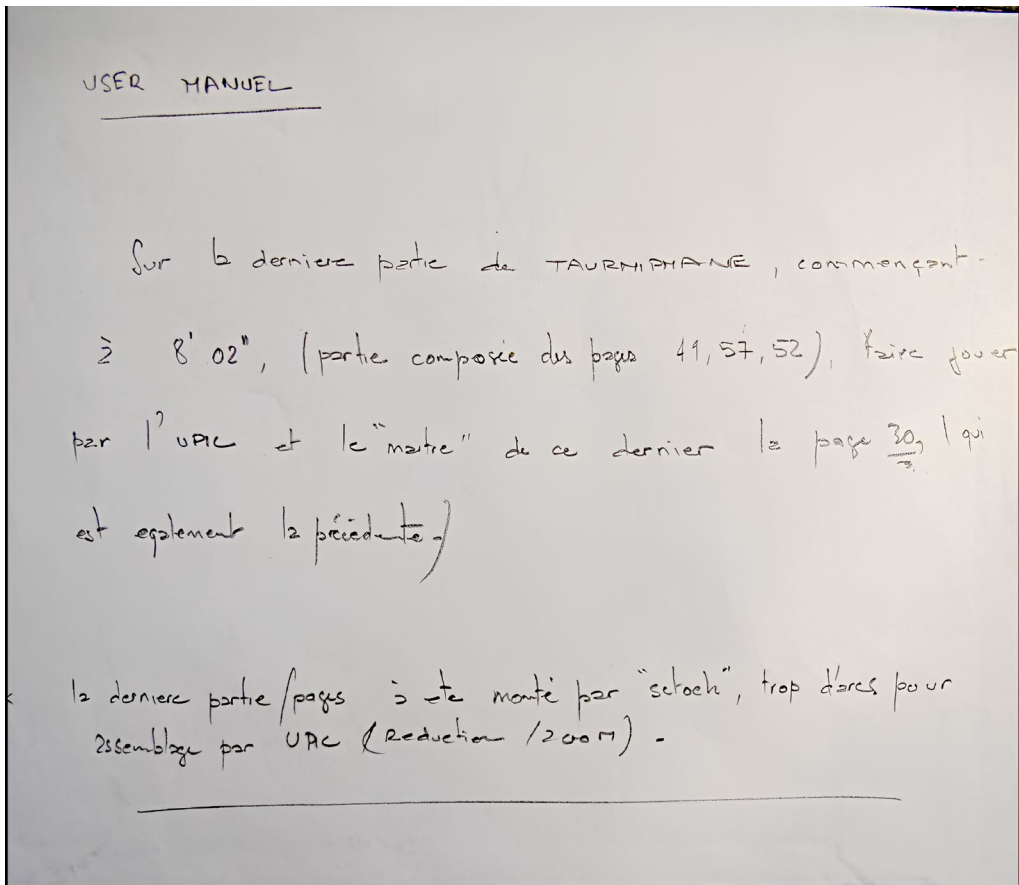 USER MANUEL
Sur la derniere partie de TAURHIPHANE, commençant
à 8' 02", (partie composée des pages 41, 57, 52), faire jouer
par l'UPIC et le "maitre" de ce dernier la page 30, (qui
est egalement la précédente.)
la derniere partie/pages à ete monté par "scotch", trop d'arcs pour
assemblage par UPIC (Reduction /zoom).